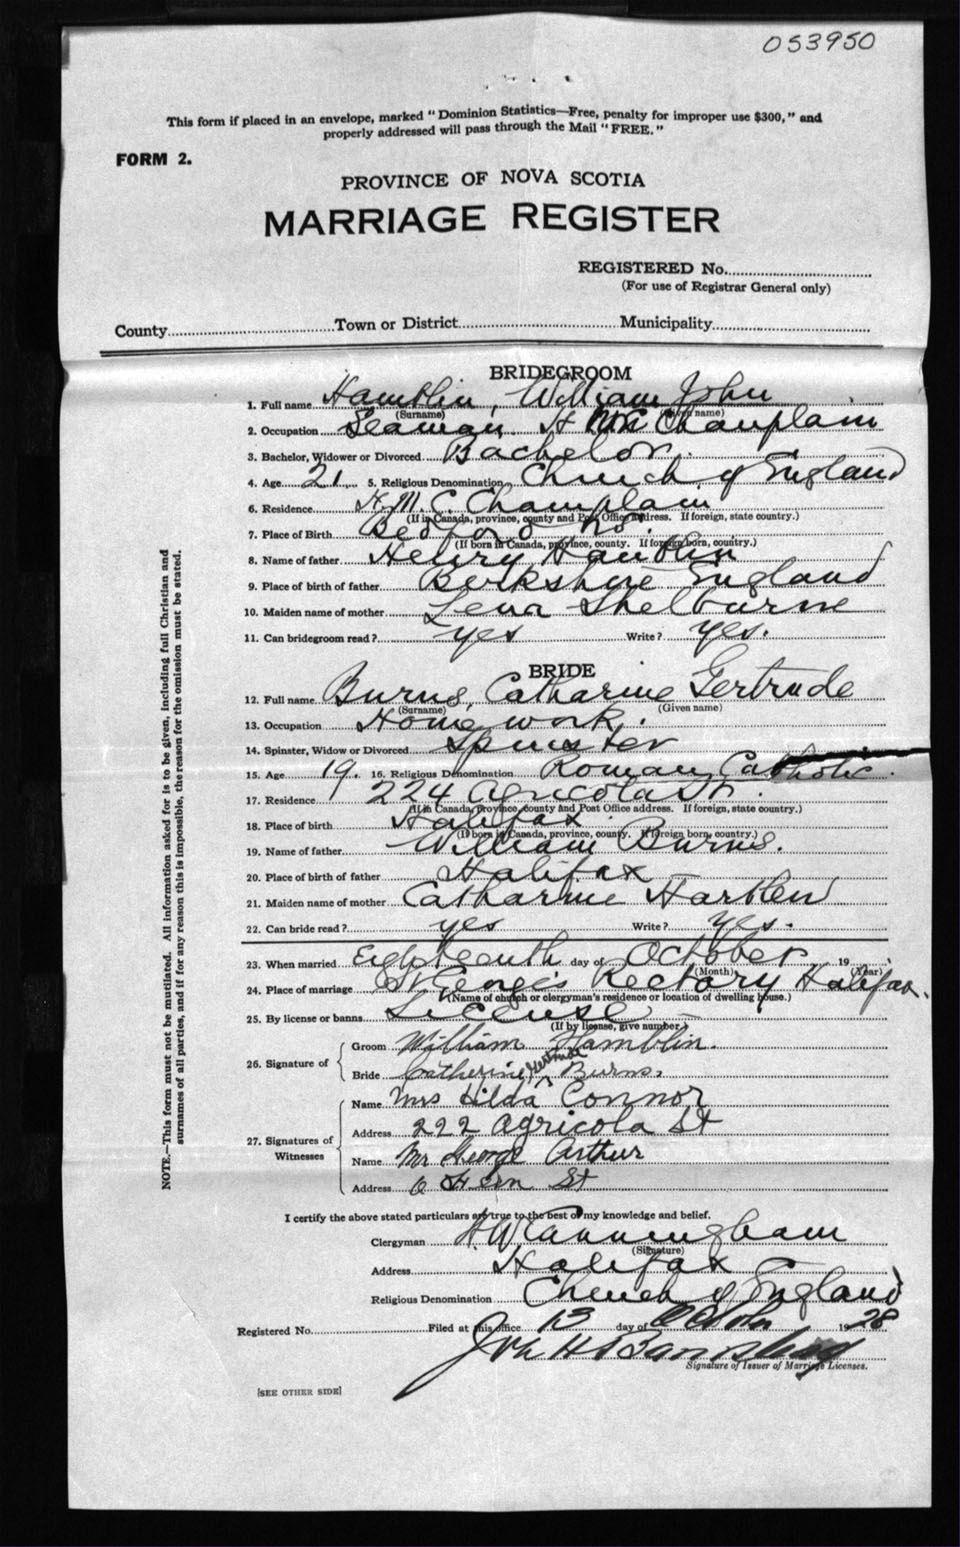 053950
This form if placed in an envelope, marked "Dominion Statistics—Free, penalty for improper use $300," and
properly addressed will pass through the Mail "FREE."
FORM 2.
PROVINCE OF NOVA SCOTIA
MARRIAGE REGISTER
REGISTERED No.
(For use of Registrar General only)
County Town or District Municipality
NOTE.—This form must not be mutilated. All information asked for is to be given, including full Christian and
surnames of all parties, and if for any reason this is impossible, the reason for the omission must be stated.
BRIDEGROOM
1. Full name Hamblin, William John
(Surname) (Given name)
2. Occupation Seaman Champlain
3. Bachelor, Widower or Divorced Bachelor
4. Age 21 5. Religious Denomination Church of England
6. Residence H.M.C. Champlain
(If in Canada, province, county and Post Office address. If foreign, state country.)
7. Place of Birth Bedford
(If born in Canada, province, county. If foreign born, country.)
8. Name of father Henry Hamblin
9. Place of birth of father Berkshire England
10. Maiden name of mother Lena Shelburne
11. Can bridegroom read? yes Write? yes.
BRIDE
12. Full name Burns, Catharine Gertrude
(Surname) (Given name)
13. Occupation Home work.
14. Spinster, Widow or Divorced Spinster
15. Age 19. 16. Religious Denomination Roman Catholic.
17. Residence 224 Agricola St.
(If in Canada, province, county and Post Office address. If foreign, state country.)
18. Place of birth Halifax
(If born in Canada, province, county. If foreign born, country.)
19. Name of father William Burns.
20. Place of birth of father Halifax
21. Maiden name of mother Catharine
22. Can bride read? yes Write? yes.
23. When married Eighteenth day of October 19
(Month) (Year)
24. Place of marriage St George's Rectory Halifax.
(Name of church or clergyman's residence or location of dwelling house.)
25. By license or banns License
(If by license, give number.)
26. Signature of Groom William Hamblin.
Bride Catherine Gertrude Burns.
27. Signatures of Witnesses Name Mrs Hilda Connor
Address 222 Agricola St
Name Mr George Arthur
Address St
I certify the above stated particulars are true to the best of my knowledge and belief.
Clergyman H W Cunningham
(Signature)
Address Halifax
Religious Denomination Church of England
Registered No. Filed at this office 13 day of October 1928
Signature of Issuer of Marriage Licenses.
[SEE OTHER SIDE]